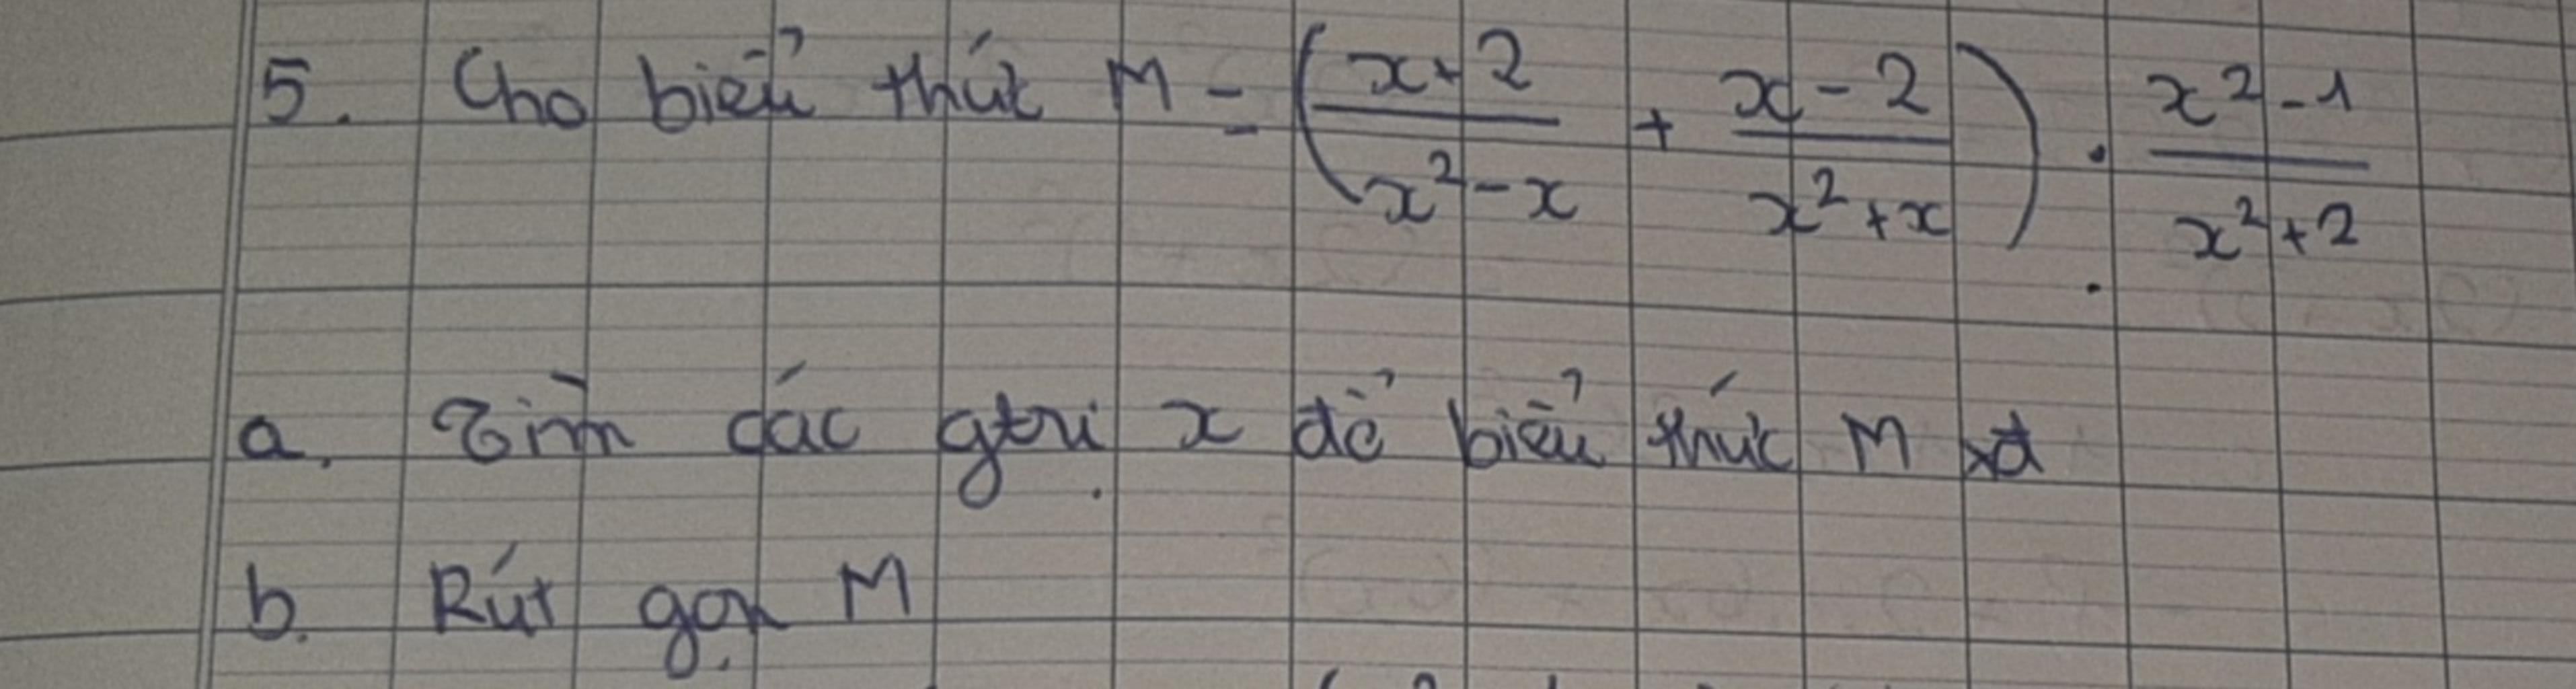 5. Cho biểu thức M = (x+2/x²-x + x-2/x²+x) . x²-1/x²+2
a. Tìm các gtrị x để biểu thức M xđ
b. Rút gọn M